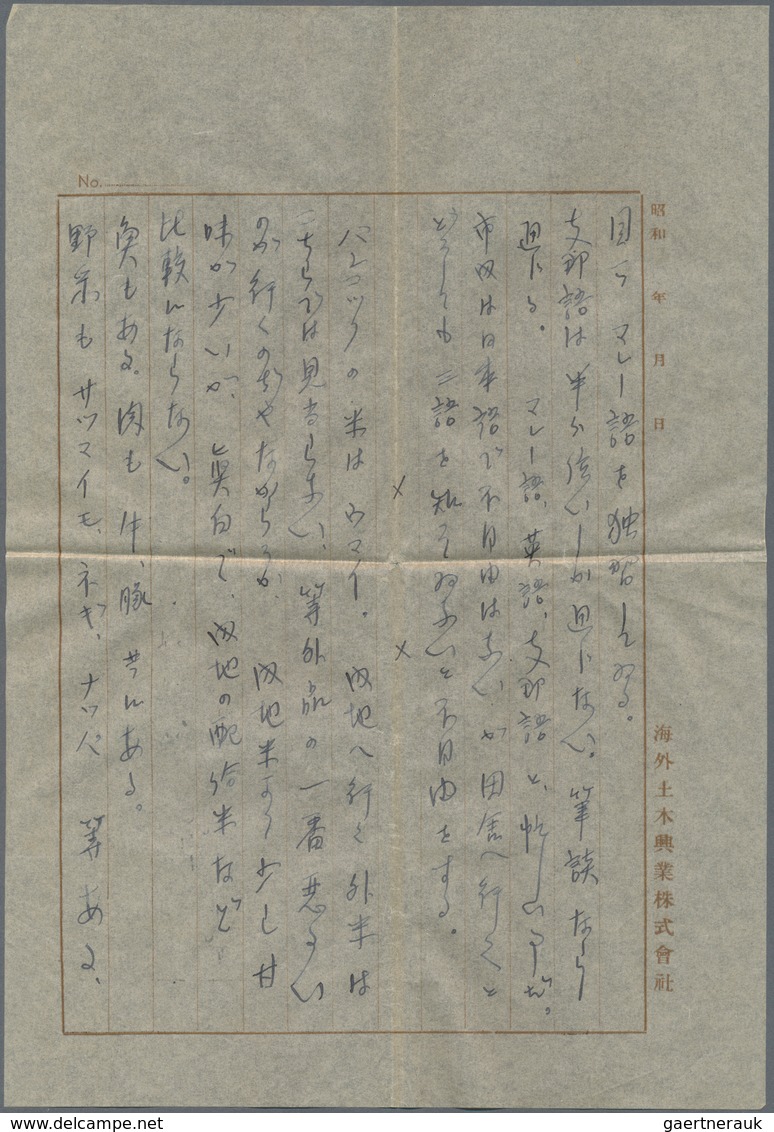 No.
昭和　年　月　日
海外土木興業株式會社
目下マレー語を独習しゐる。
支那語は半分位いしか通じない。筆談なら
通じる。マレー語、英語、支那語と、忙しい事だ。
市内は日本語で不自由はないが田舎へ行くと
どうしても三語を知てゐないと不自由をする。
× ×
バンコックの米はウマイ。内地へ行く外米は
こちらでは見当らない、等外品の一番悪るい
のが行くのぢやなからうか、内地米より少し甘
味が少いが、眞白で、内地の配給米など
比較にならない。
魚もある。肉も牛、豚 共にある。
野菜もサツマイモ、ネギ、ナッパ 等ある、
www.delcampe.net
gaertnerauk